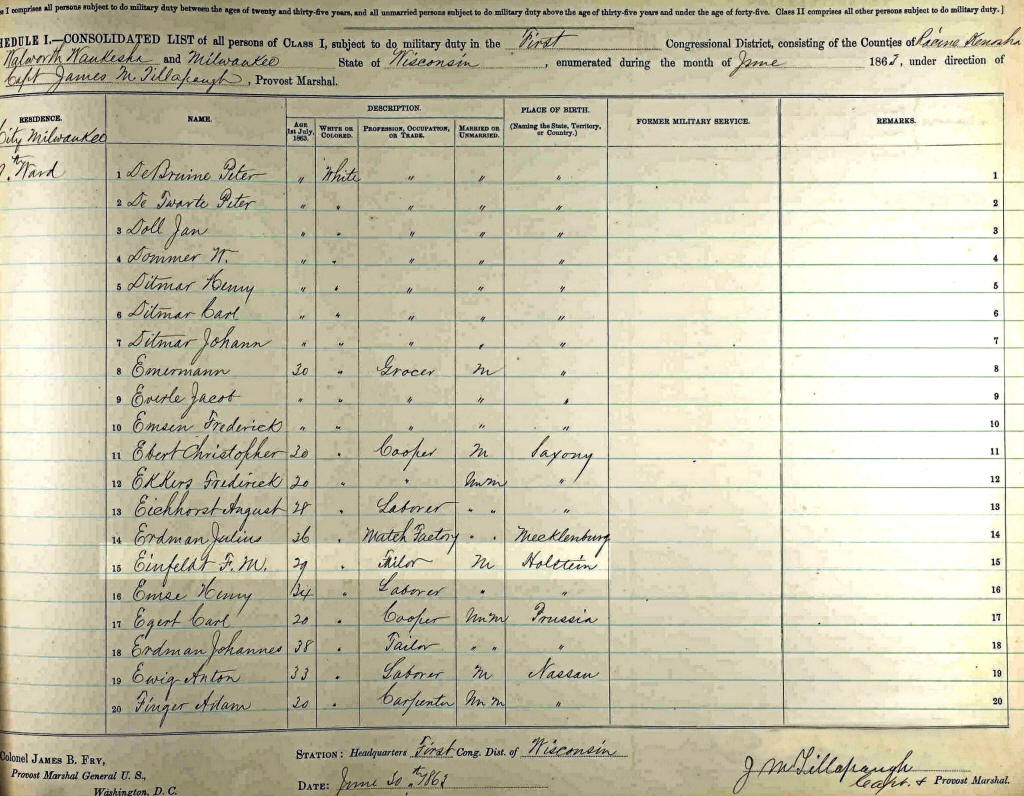 s I comprises all persons subject to do military duty between the ages of twenty and thirty-five years, and all unmarried persons subject to do military duty above the age of thirty-five years and under the age of forty-five. Class II comprises all other persons subject to do military duty.]
HEDULE I.—CONSOLIDATED LIST of all persons of CLASS I, subject to do military duty in the First Congressional District, consisting of the Counties of Racine Kenosha
Walworth Waukesha and Milwaukee State of Wisconsin, enumerated during the month of June 1863, under direction of
Capt James M Tillapaugh, Provost Marshal.
RESIDENCE. NAME. DESCRIPTION. PLACE OF BIRTH. (Naming the State, Territory, or Country.) FORMER MILITARY SERVICE. REMARKS.
AGE 1st July, 1863. WHITE OR COLORED. PROFESSION, OCCUPATION, OR TRADE. MARRIED OR UNMARRIED.
City Milwaukee
th Ward
1 De Bruine Peter " White " " " 1
2 De Twarte Peter " " " " " 2
3 Doll Jan " " " " " 3
4 Dommer W. " " " " " 4
5 Ditmar Henry " " " " " 5
6 Ditmar Carl " " " " " 6
7 Ditmar Johann " " " " " 7
8 Emermann 30 " Grocer M " 8
9 Everle Jacob " " " " " 9
10 Emsen Frederick " " " " " 10
11 Ebert Christopher 30 " Cooper M Saxony 11
12 Ekkers Frederick 20 " " Unm " 12
13 Eichhorst August 28 " Laborer " " " 13
14 Erdman Julius 36 " Match Factory " " Mecklenburg 14
15 Einfeldt F. M. 29 " Tailor M Holstein 15
16 Emse Henry 34 " Laborer " " 16
17 Egert Carl 20 " Cooper Unm Prussia 17
18 Erdman Johannes 38 " Tailor " " " 18
19 Ewig Anton 33 " Laborer M Nassau 19
20 Finger Adam 30 " Carpenter Unm " 20
Colonel JAMES B. FRY,
Provost Marshal General U. S.,
Washington, D. C.
STATION: Headquarters First Cong. Dist. of Wisconsin
DATE: June 30th 1863
J M Tillapaugh
Capt. & Provost Marshal.